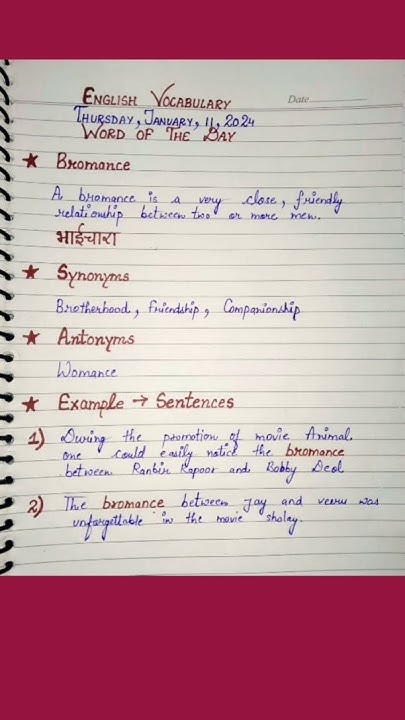 ENGLISH VOCABULARY
Date
THURSDAY, JANUARY, 11, 2024
WORD OF THE DAY
★ Bromance
A bromance is a very close, friendly
relationship between two or more men.
भाईचारा
★ Synonyms
Brotherhood, Friendship, Companionship
★ Antonyms
Womance
★ Example → Sentences
1) During the promotion of movie Animal,
one could easily notice the bromance
between Ranbir Kapoor and Bobby Deol
2) The bromance between Jay and veeru was
unforgettable in the movie sholay.